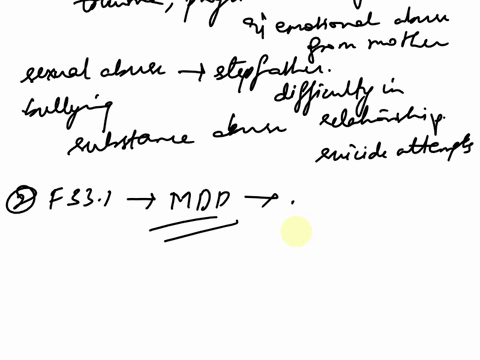 emotional abuse
from mother
sexual abuse → stepfather.
bullying
difficulty in
substance abuse relationship.
suicide attempts
② F33.1 → MDD → .